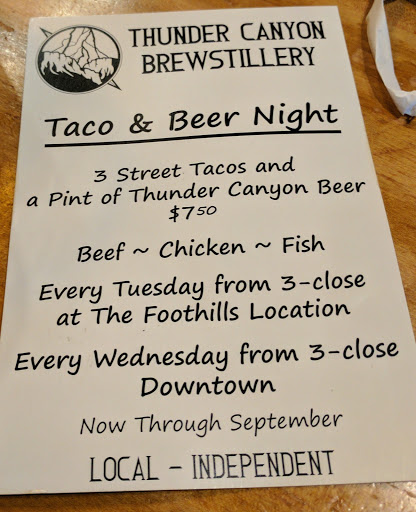 THUNDER CANYON
BREWSTILLERY
Taco & Beer Night
3 Street Tacos and
a Pint of Thunder Canyon Beer
$7⁵⁰
Beef ~ Chicken ~ Fish
Every Tuesday from 3-close
at The Foothills Location
Every Wednesday from 3-close
Downtown
Now Through September
LOCAL - INDEPENDENT